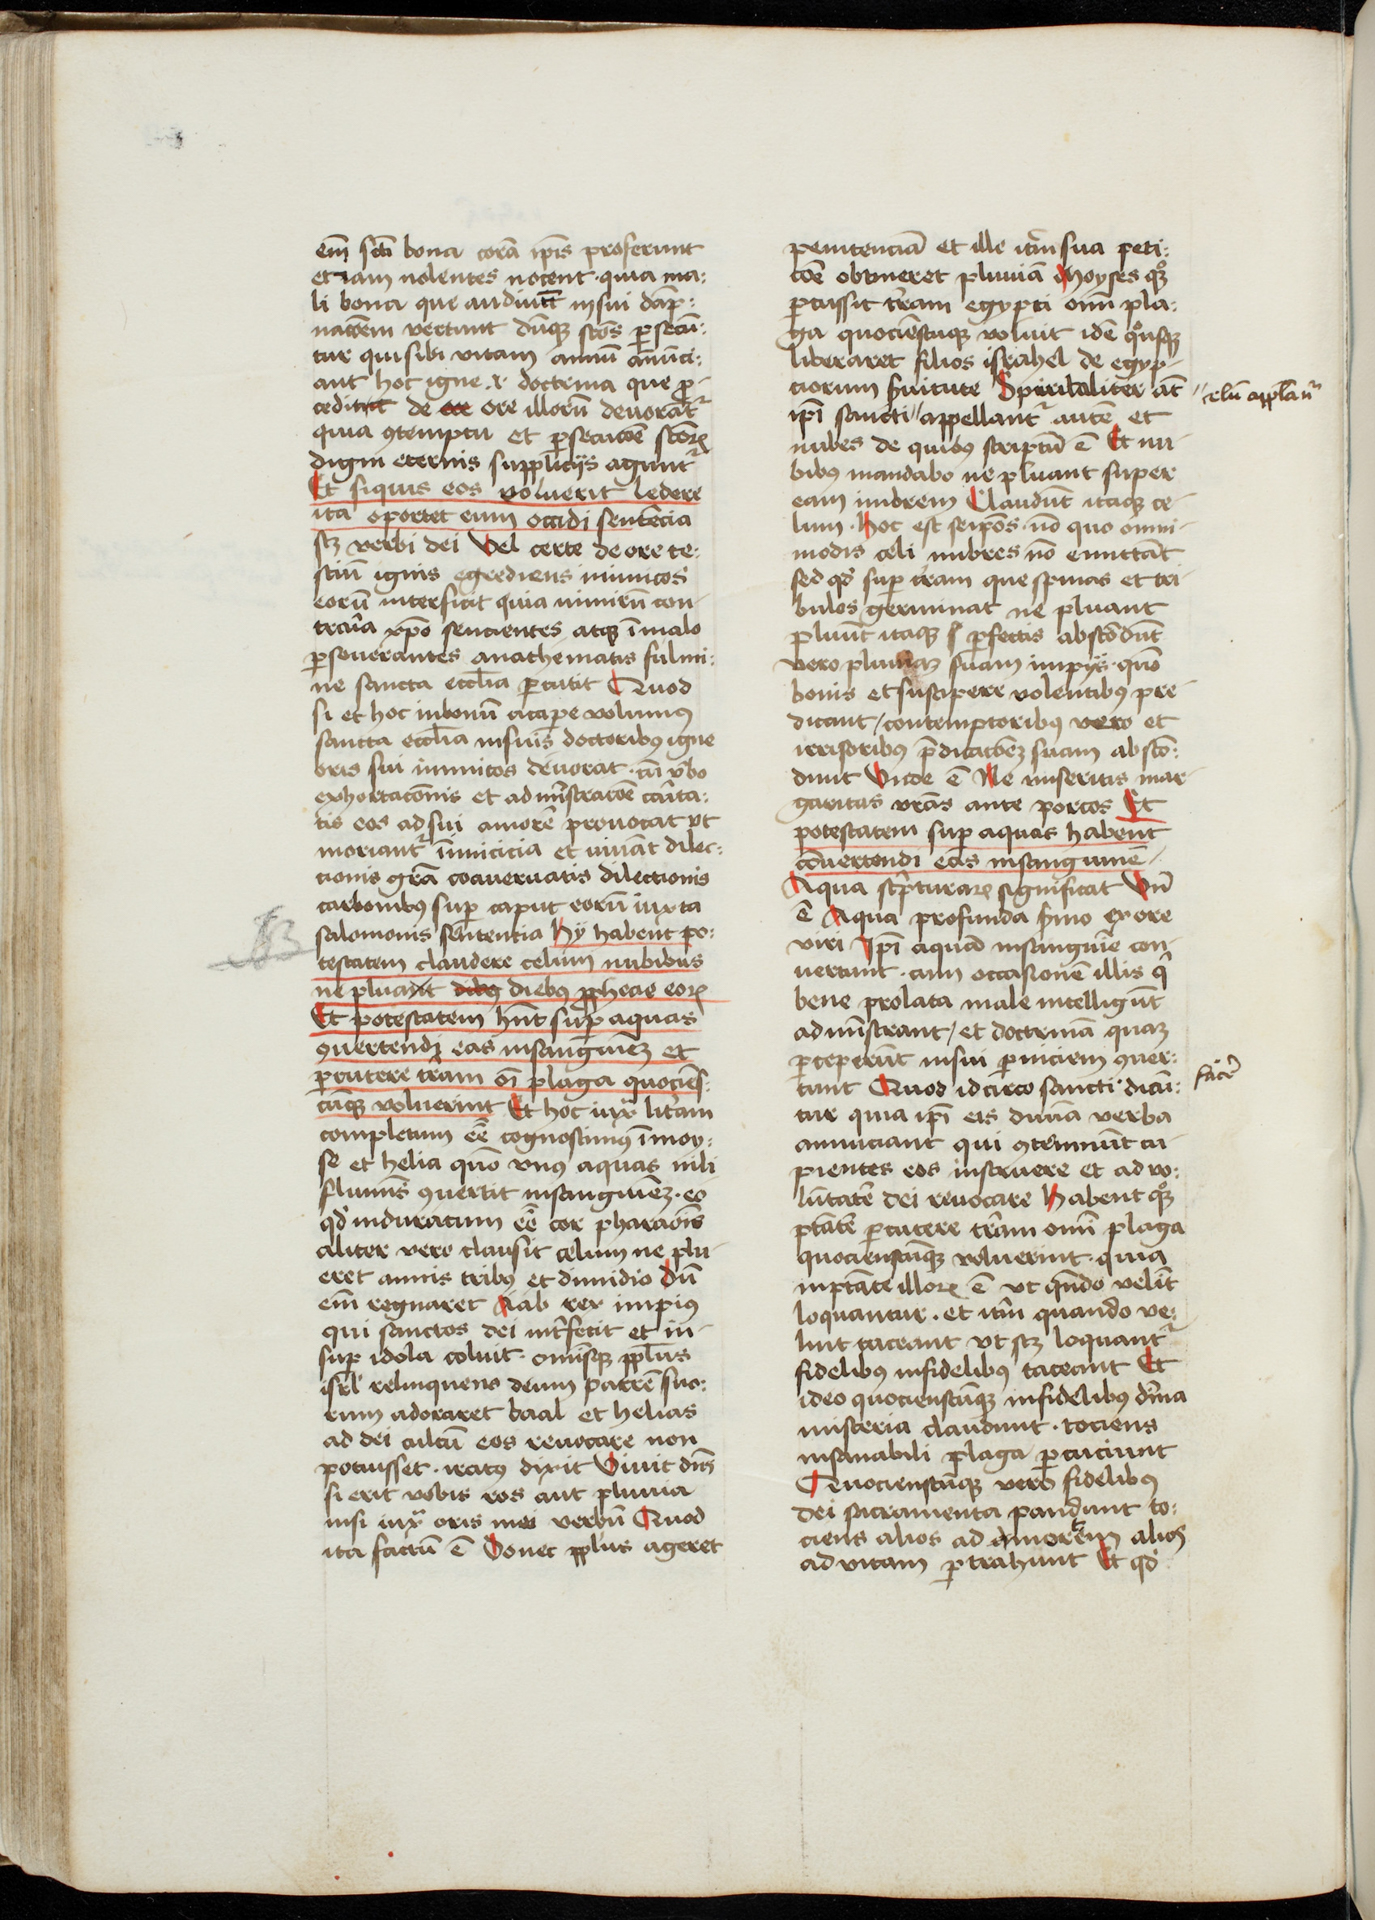 em̄ sc̄i bona corā ip̄is proferunt
etiam nolentes nocent · quia ma:
li bona que audiunt in sui dāp:
nacōem vertunt dūqꝫ sc̄os ꝑsecū:
tur qui sibi vitam animū anūnci:
ant hoc igne .i. doctrina que ꝓ:
cedit de ore illorū deuorāt᷑
quia ꝯtemptu et ꝑsecucōe sc̄oꝝ
digni eternis supplicijs agunt᷑
Et siquis eos voluerit ledere
ita oportet eum occidi sentēcia
scꝫ verbi dei Vel certe de ore te:
stiū ignis egrediens inimicos
eorū interficit quia nimirū con-
traria xp̄o sencientes atqꝫ ī malo
ꝑseuerantes anathematis fulmi:
ne sancta ecc̄lia ꝑcutit Quod
si et hoc in bonū accipe volumꝰ
sancta ecc̄lia in suis doctoribꝰ igne
oris sui inimicos deuorat · cū v̄bo
exhortacōnis et admīstracōe carita:
tis eos ad sui amorē prouocat vt
moriant᷑ inimicicia et viuāt dilec:
cionis gr̄a coaceruatis dilectionis
carbonibꝰ suꝑ caput eorū iuxta
salomonis sentencia Hij habent po:
testatem claudere celum nubibus
ne pluat diebus ꝓphecie eoꝝ
Et potestatem hn̄t suꝑ aquas
ꝯuertendi eas in sanguinēꝫ et
ꝑcutere terram oī plaga quociēs:
cūqꝫ voluerint Et hoc iux᷑ lr̄am
completum eē cognoscimꝰ ī moy:
se et helia quō vnꝰ aquas nili
fluminis ꝯuertit in sanguinēꝫ · eo
qd̄ induratum eē cor pharaōis
aliter vero clausit celum ne plu-
eret annis tribꝰ et dimidio Dū
em̄ regnaret Aab rex impius
qui sanctos dei int̄fecit et in-
suꝑ idola coluit · omīsqꝫ pp̄lus
isrl̄ relinquens deum patrē suo:
rum adoraret baal et helias
ad dei cultū eos reuocare non
potuisset · iratꝰ dixit Viuit dn̄s
si erit vobis ros aut pluuia
nisi iux᷑ oris mei verbū Quod
ita factū ē Donec pp̄lus ageret
penitenciā et ille itm̄ sua peti:
cōe obtineret pluuiā Moyses qꝫ
ꝑcussit terram egypti omī pla:
ga quociēscūqꝫ voluit idē qͦusqꝫ
liberaret filios israhel de egyp-
ciorum ẜuitute Spiritualiter at̄
ip̄i sancti // appellant᷑ autē et
nubes de quibꝰ scriptū ē Et nu-
bibus mandabo ne pluant super
eam imbrem Claudūt itaqꝫ ce-
lum · Hoc est seip̄os · nō quo omni-
modis celi imbres nō emittāt
sed qd̄ suꝑ terram que spinas et tri-
bulos germinat ne pluant
pluūt itaqꝫ ꝑfectis abscōdūt
vero pluuiaꝫ suam impijs · quō
bonis et suscipere volentibꝰ pre-
dicant / contemptoribus vero et
irrisoribus p̄dicacōeꝫ suam abscō:
dunt Vnde ē Ne miseritis mar-
garitas vr̄as ante porcos Et
potestatem suꝑ aquas habent
cōuertendi eas in sanguinē
Aqua scripturaꝝ significat Vn̄
ē Aqua profunda ẜmo ex ore
viri Ip̄i aquā in sanguinē con-
uertunt · cum occasionē illis qͥ
bene prolata male intelligūt
adminstrant / et doctrinā quaꝫ
ꝑceperūt in sui ꝑniciem ꝯuer:
tunt Quod idcirco sancti dicū:
tur quia ip̄i eis diuina verba
annuciant qui ꝯtemnūt cu-
pientes eos instruere et ad vo:
lūtatē dei reuocare Habent qꝫ
ptātē ꝑcutere terram omī plaga
quociescūqꝫ voluerint · quia
in ptāte illoꝝ ē vt qn̄do velīt
loquantur · et itm̄ quando ve:
lint taceant vt scꝫ loquant᷑
fidelibꝰ infidelibus taceant Et
ideo quocienscūqꝫ infidelibus diuina
misteria claudunt · tociens
insanabili plaga ꝑcuciunt
Quocienscūqꝫ vero fidelibꝰ
dei sacramenta pandunt to:
ciens alios ad amorem alios
ad vitam ꝑtrahunt Et qd̄
// celū appllant᷑
facere